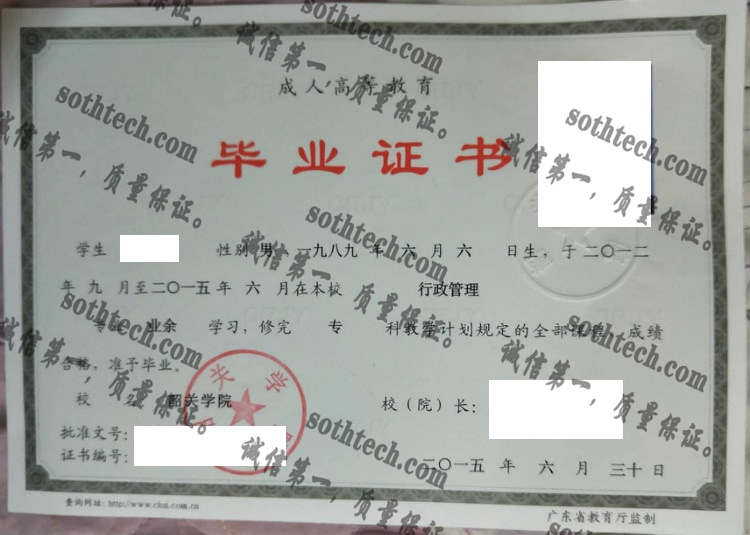 成人高等教育
毕业证书
学生 性别 男 一九八九 年 六 月 六 日生,于 二〇一二
年 九 月至二〇一五年 六 月在本校 行政管理
专业 业余 学习,修完 专 科教学计划规定的全部课程,成绩
合格,准予毕业。
校 名: 韶关学院 校(院)长:
批准文号:
证书编号:
二〇一五 年 六 月 三十 日
查询网址: http://www.chsi.com.cn
广东省教育厅监制
关学
sothtech.com
诚信第一,质量保证。
sothtech.com
诚信第一,质量保证。
sothtech.com
诚信第一,质量保证。
sothtech.com
诚信第一,质量保证。
sothtech.com
诚信第一,质量保证。
sothtech.com
诚信第一,质量保证。
sothtech.com
诚信第一,质量保证。